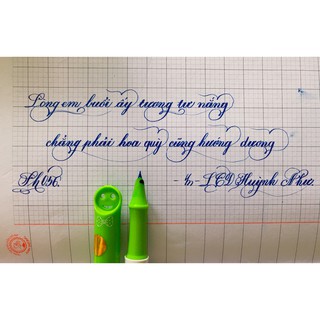 Lòng em buổi ấy tương tư nắng
chẳng phải hoa quỳ cũng hướng dương
Ph056. - Yn - LCD Huỳnh Như.